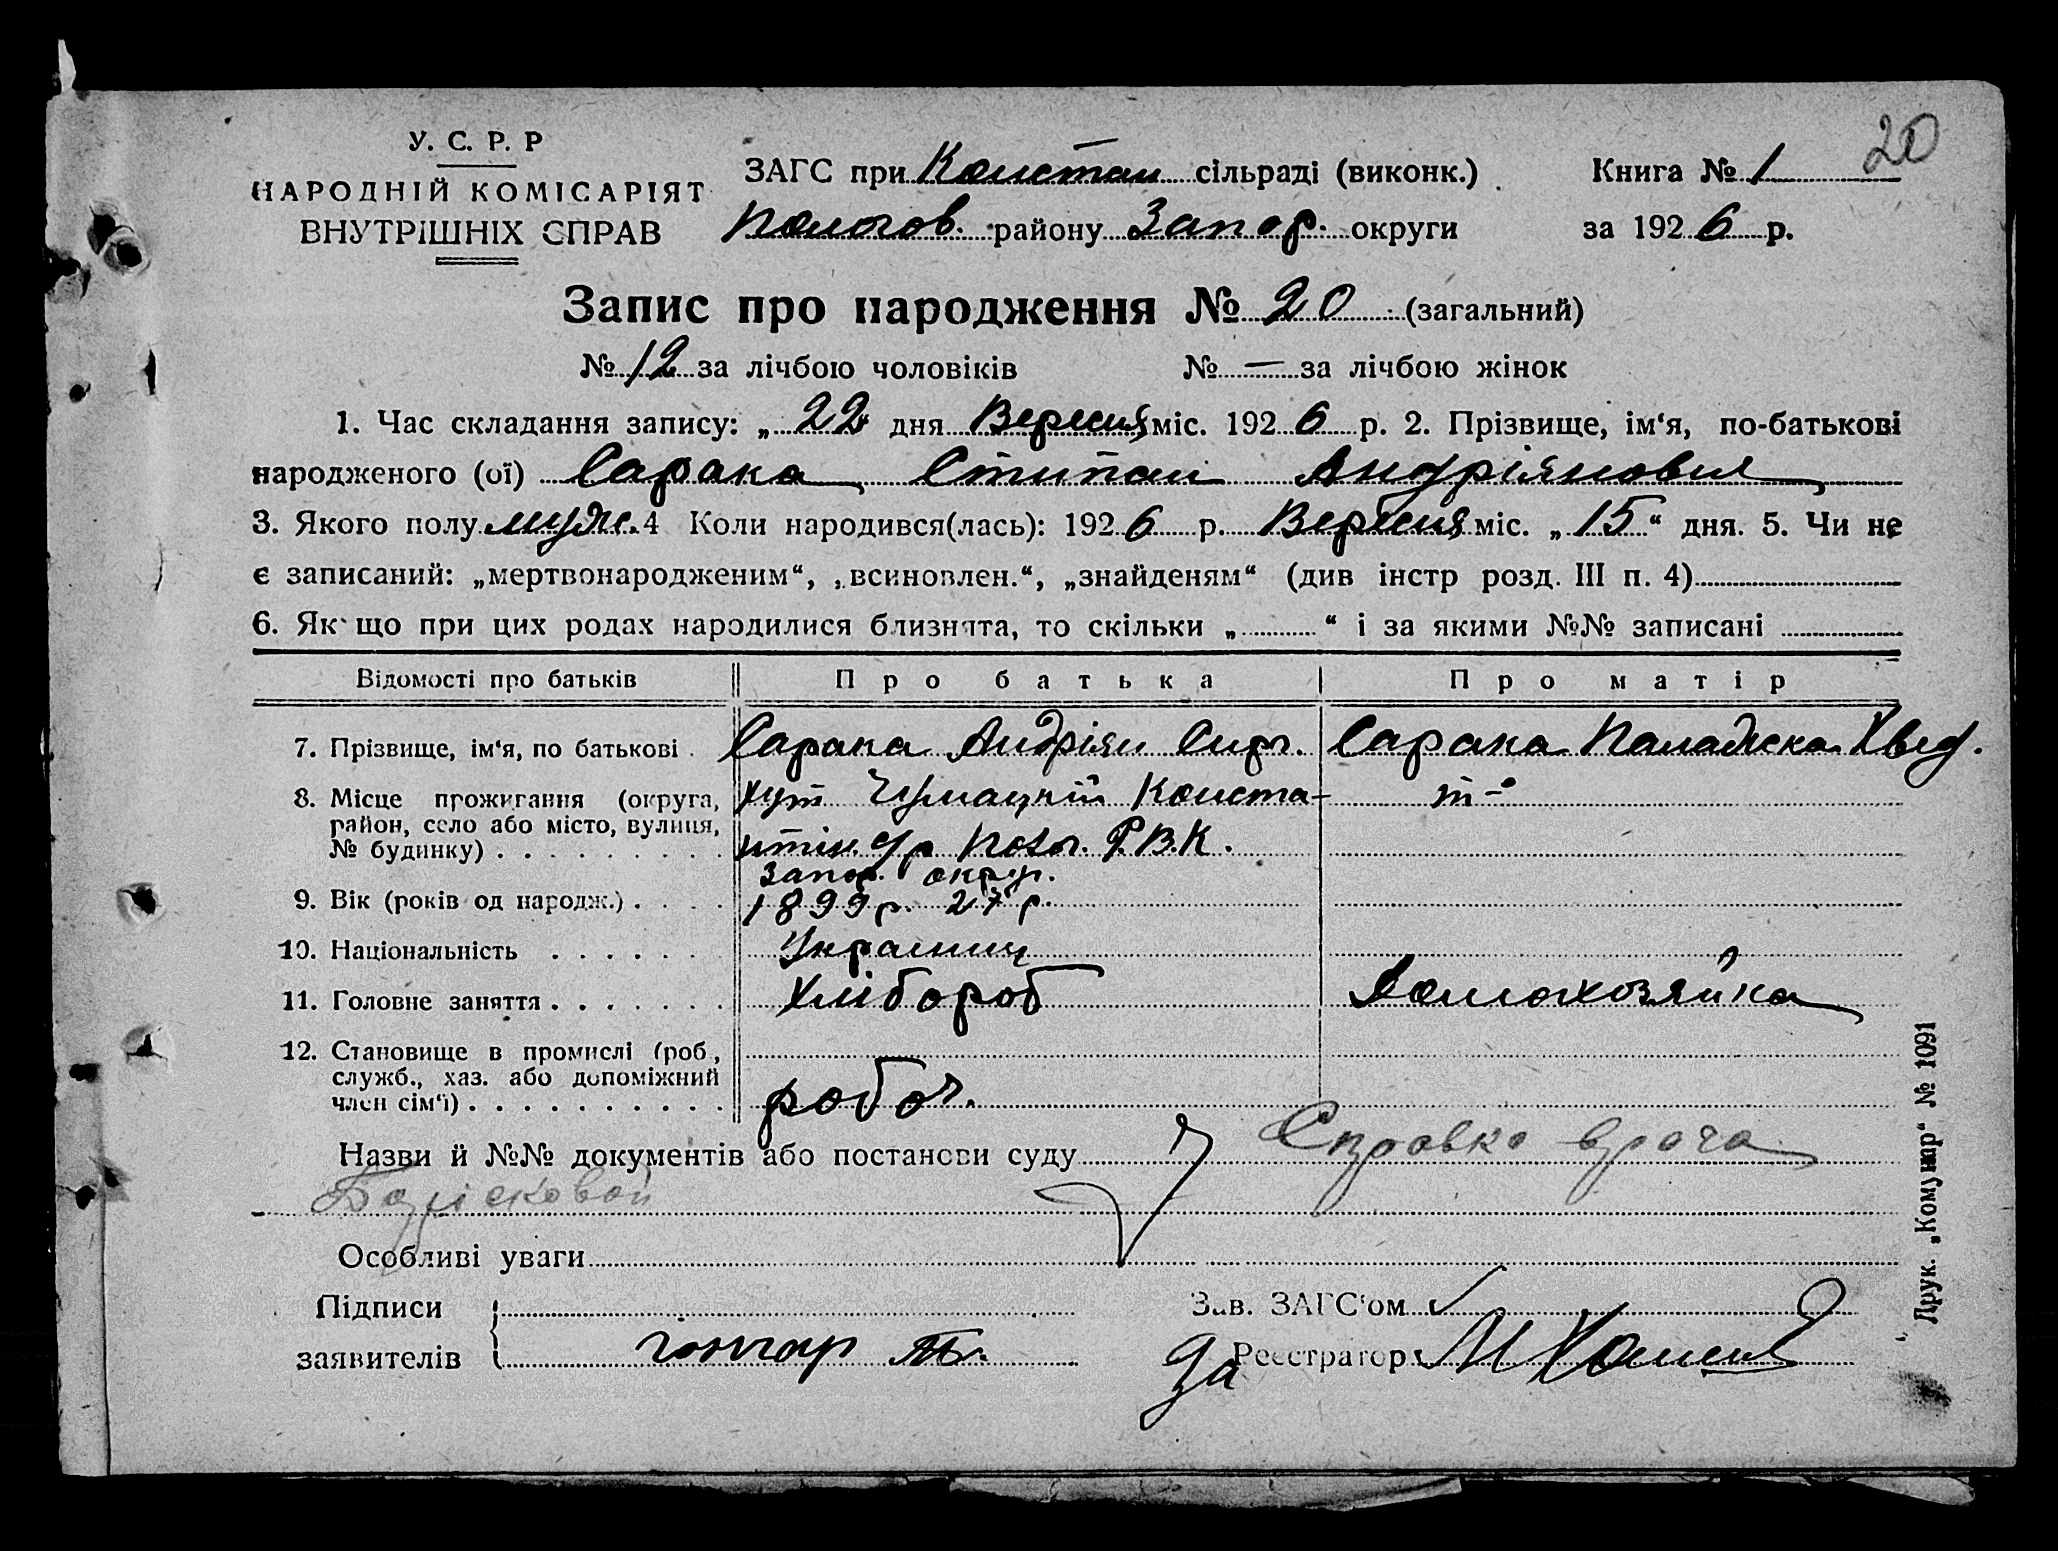 20
У. С. Р. Р
НАРОДНІЙ КОМІСАРІЯТ
ВНУТРІШНІХ СПРАВ
ЗАГС при Констан сільраді (виконк.)
Пологов. району Запор. округи
Книга № 1
за 1926 р.
Запис про народження № 20 (загальний)
№ 12 за лічбою чоловіків № — за лічбою жінок
1. Час складання запису: „22 дня Вересня міс. 1926 р. 2. Прізвище, ім‘я, по-батькові
народженого (ої) Сарана Стипан Андріянович
3. Якого полу муж. 4 Коли народився(лась): 1926 р. Вересня міс. „15“ дня. 5. Чи не
є записаний: „мертвонародженим“, „всиновлен.“, „знайденям“ (див інстр розд. III п. 4)
6. Як що при цих родах народилися близнята, то скільки „ “ і за якими №№ записані
Відомості про батьків Про батька Про матір
7. Прізвище, ім‘я, по батькові Сарана Андріян Сарана Хвед.
8. Місце прожигання (округа, район, село або місто, вулиця, № будинку)
хут Чумацкій Конста-
нтін. с/р Полог. Р.В.К.
Запор. окр.
т-
9. Вік (років од народж.) 1899 р. 27 р.
10. Національність Украинец
11. Головне заняття Хлібороб Домохозяйка
12. Становище в промислі (роб., служб., хаз. або допоміжний член сім‘ї) робоч.
Назви й №№ документів або постанови суду Справка врача
Особливі уваги
Підписи
заявителів Гончар
Зав. ЗАГС‘ом
За Реєстратор
Друк. „Комунар“ № 1091